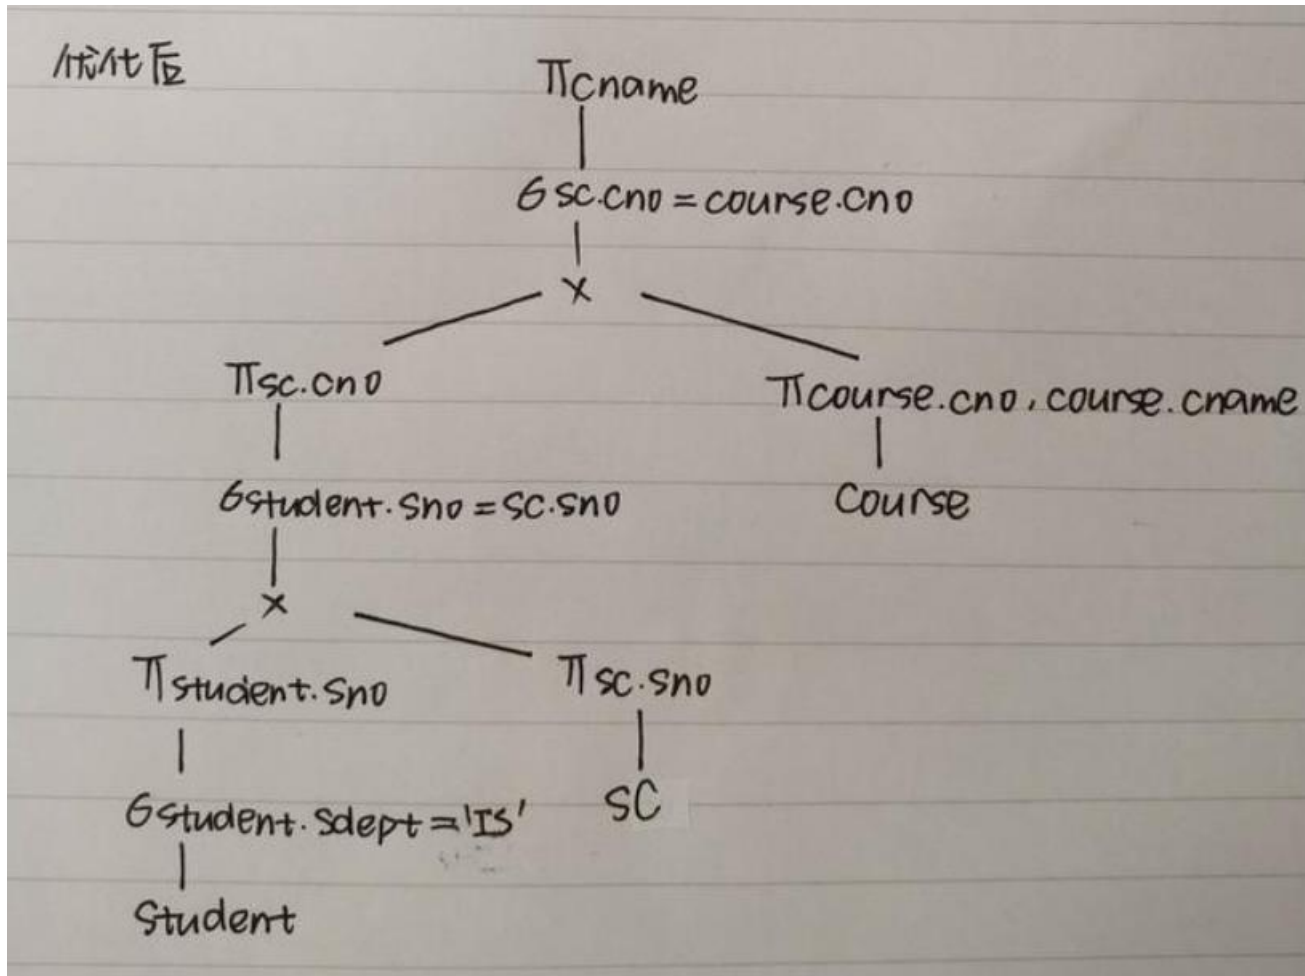 优化后
πcname
σsc.cno=course.cno
×
πsc.cno
πcourse.cno,course.cname
σstudent.sno=sc.sno
course
×
πstudent.sno
πsc.sno
σstudent.sdept='IS'
SC
Student